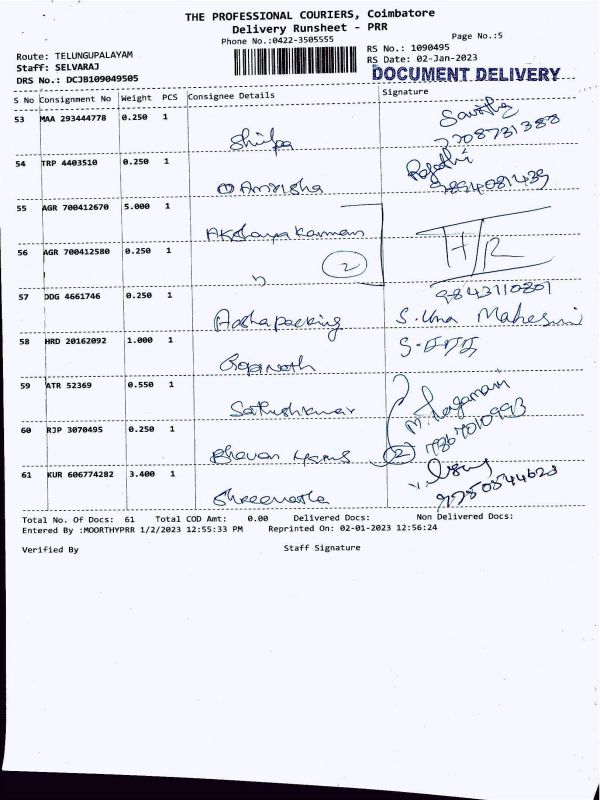 THE PROFESSIONAL COURIERS, Coimbatore
Delivery Runsheet - PRR
Phone No.:0422-3505555
Page No.:5
Route: TELUNGUPALAYAM
Staff: SELVARAJ
DRS No.: DCJB109049505
RS No.: 1090495
RS Date: 02-Jan-2023
DOCUMENT DELIVERY
S No Consignment No Weight PCS Consignee Details Signature
53 MAA 293444778 0.250 1
Shilpa
54 TRP 4403510 0.250 1
Amrisha
9894081439
55 AGR 700412670 5.000 1
Akshaya Kannan
H/R
56 AGR 700412580 0.250 1
2
9843110801
57 DDG 4661746 0.250 1
Aasha packing S. Uma Maheswari
58 HRD 20162092 1.000 1
Gopinath
59 ATR 52369 0.550 1
Sathishkumar
60 RJP 3070495 0.250 1
2
61 KUR 606774282 3.400 1
Total No. Of Docs: 61 Total COD Amt: 0.00 Delivered Docs: Non Delivered Docs:
Entered By :MOORTHYPRR 1/2/2023 12:55:33 PM Reprinted On: 02-01-2023 12:56:24
Verified By Staff Signature